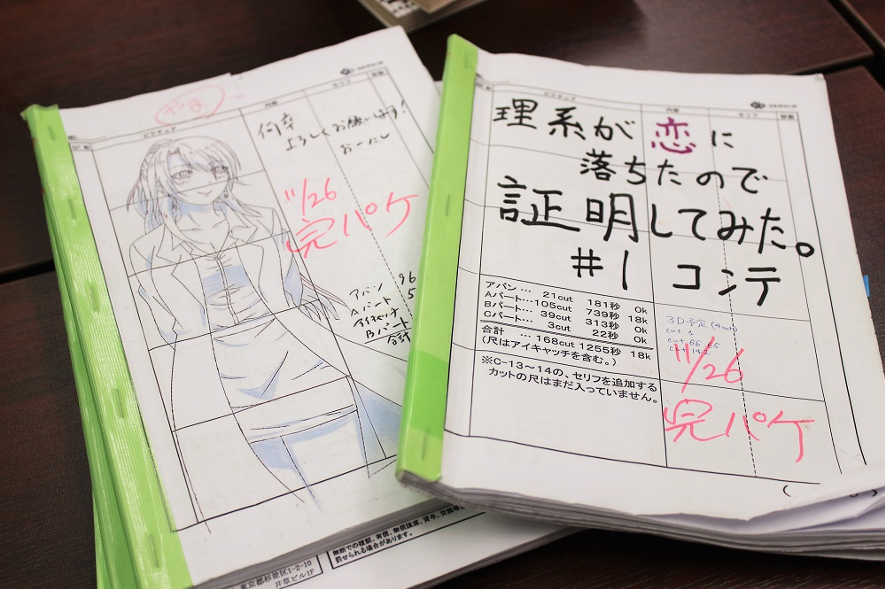 やま
ピクチュア
内容
セリフ
秒数
何卒
よろしくお願いします!
11/26
完パケ
アバン
96
Aパート
アイキャッチ
Bパート
合計
無断での複製、有償、無償譲渡、貸与、交換等
罰せられる場合があります。
東京都杉並区1-2-10
井草ビル1F
ピクチュア
内容
セリフ
秒数
理系が恋に
落ちたので
証明してみた。
#1 コンテ
アバン… 21cut 181秒 0k
Aパート…105cut 739秒 18k
Bパート… 39cut 313秒 0k
Cパート… 3cut 22秒 0k
合計 …168cut 1255秒 18k
(尺はアイキャッチを含む。)
※C-13~14の、セリフを追加する
カットの尺はまだ入っていません。
11/26
完パケ